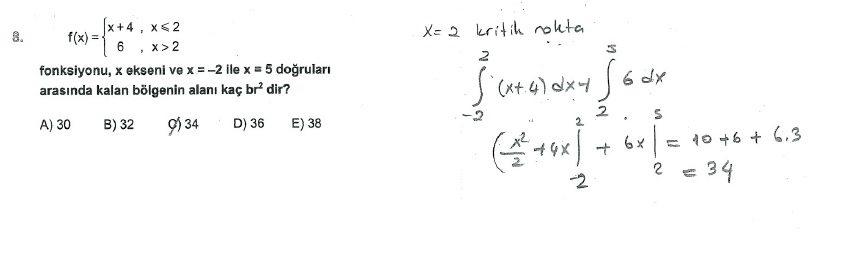 8. f(x) = { x+4 , x ≤ 2
6 , x > 2
fonksiyonu, x ekseni ve x = –2 ile x = 5 doğruları
arasında kalan bölgenin alanı kaç br² dir?
A) 30 B) 32 C) 34 D) 36 E) 38
x = 2 kritik nokta
∫_{-2}^{2} (x+4) dx + ∫_{2}^{5} 6 dx
(x²/2 + 4x |_{-2}^{2} + 6x |_{2}^{5} = 10 + 6 + 6.3
= 34